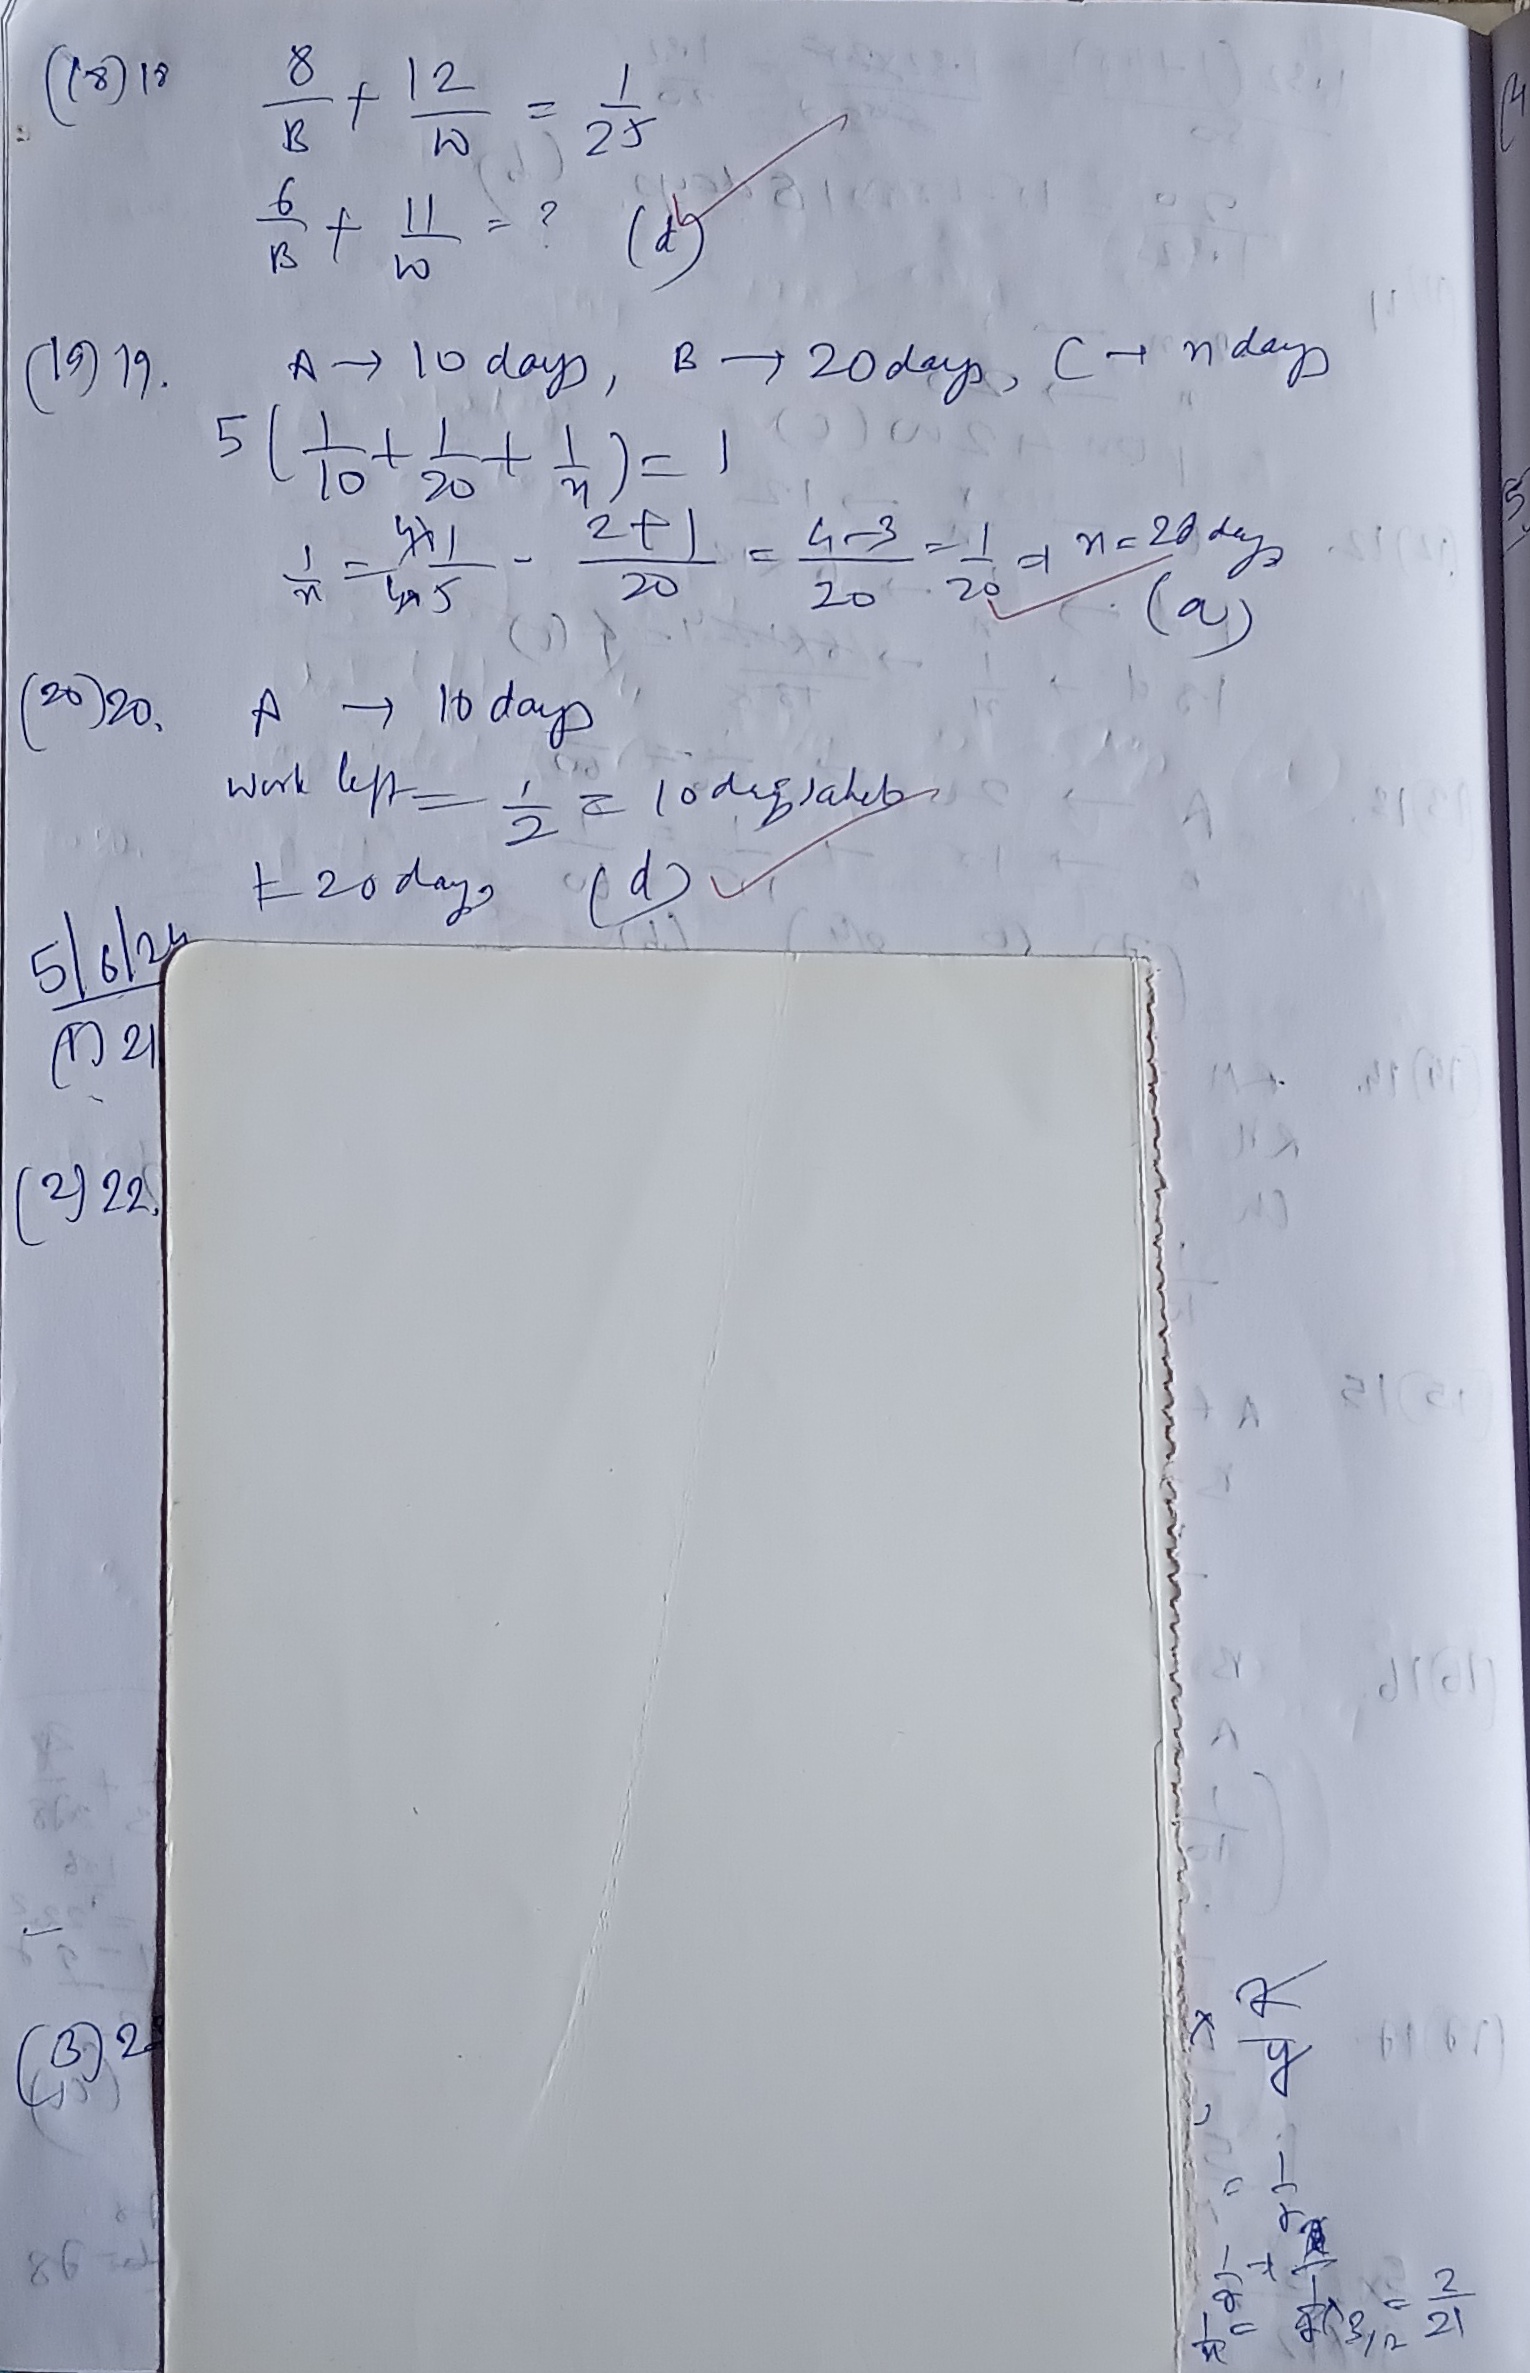 (18) 18 8/B + 12/W = 1/25
6/B + 11/W = ? (d)
(19) 19. A → 10 days, B → 20 days, C → n days
5(1/10 + 1/20 + 1/n) = 1
1/n = 4×1/4×5 - 2+1/20 = 4-3/20 = 1/20 ⇒ n = 20 days
(a)
(20) 20. A → 10 days
work left = 1/2 = 10 days
= 20 days (d)
5/6/24
(1) 21
(2) 22.
(3) 2
x/y
= 1/2
= 2/21